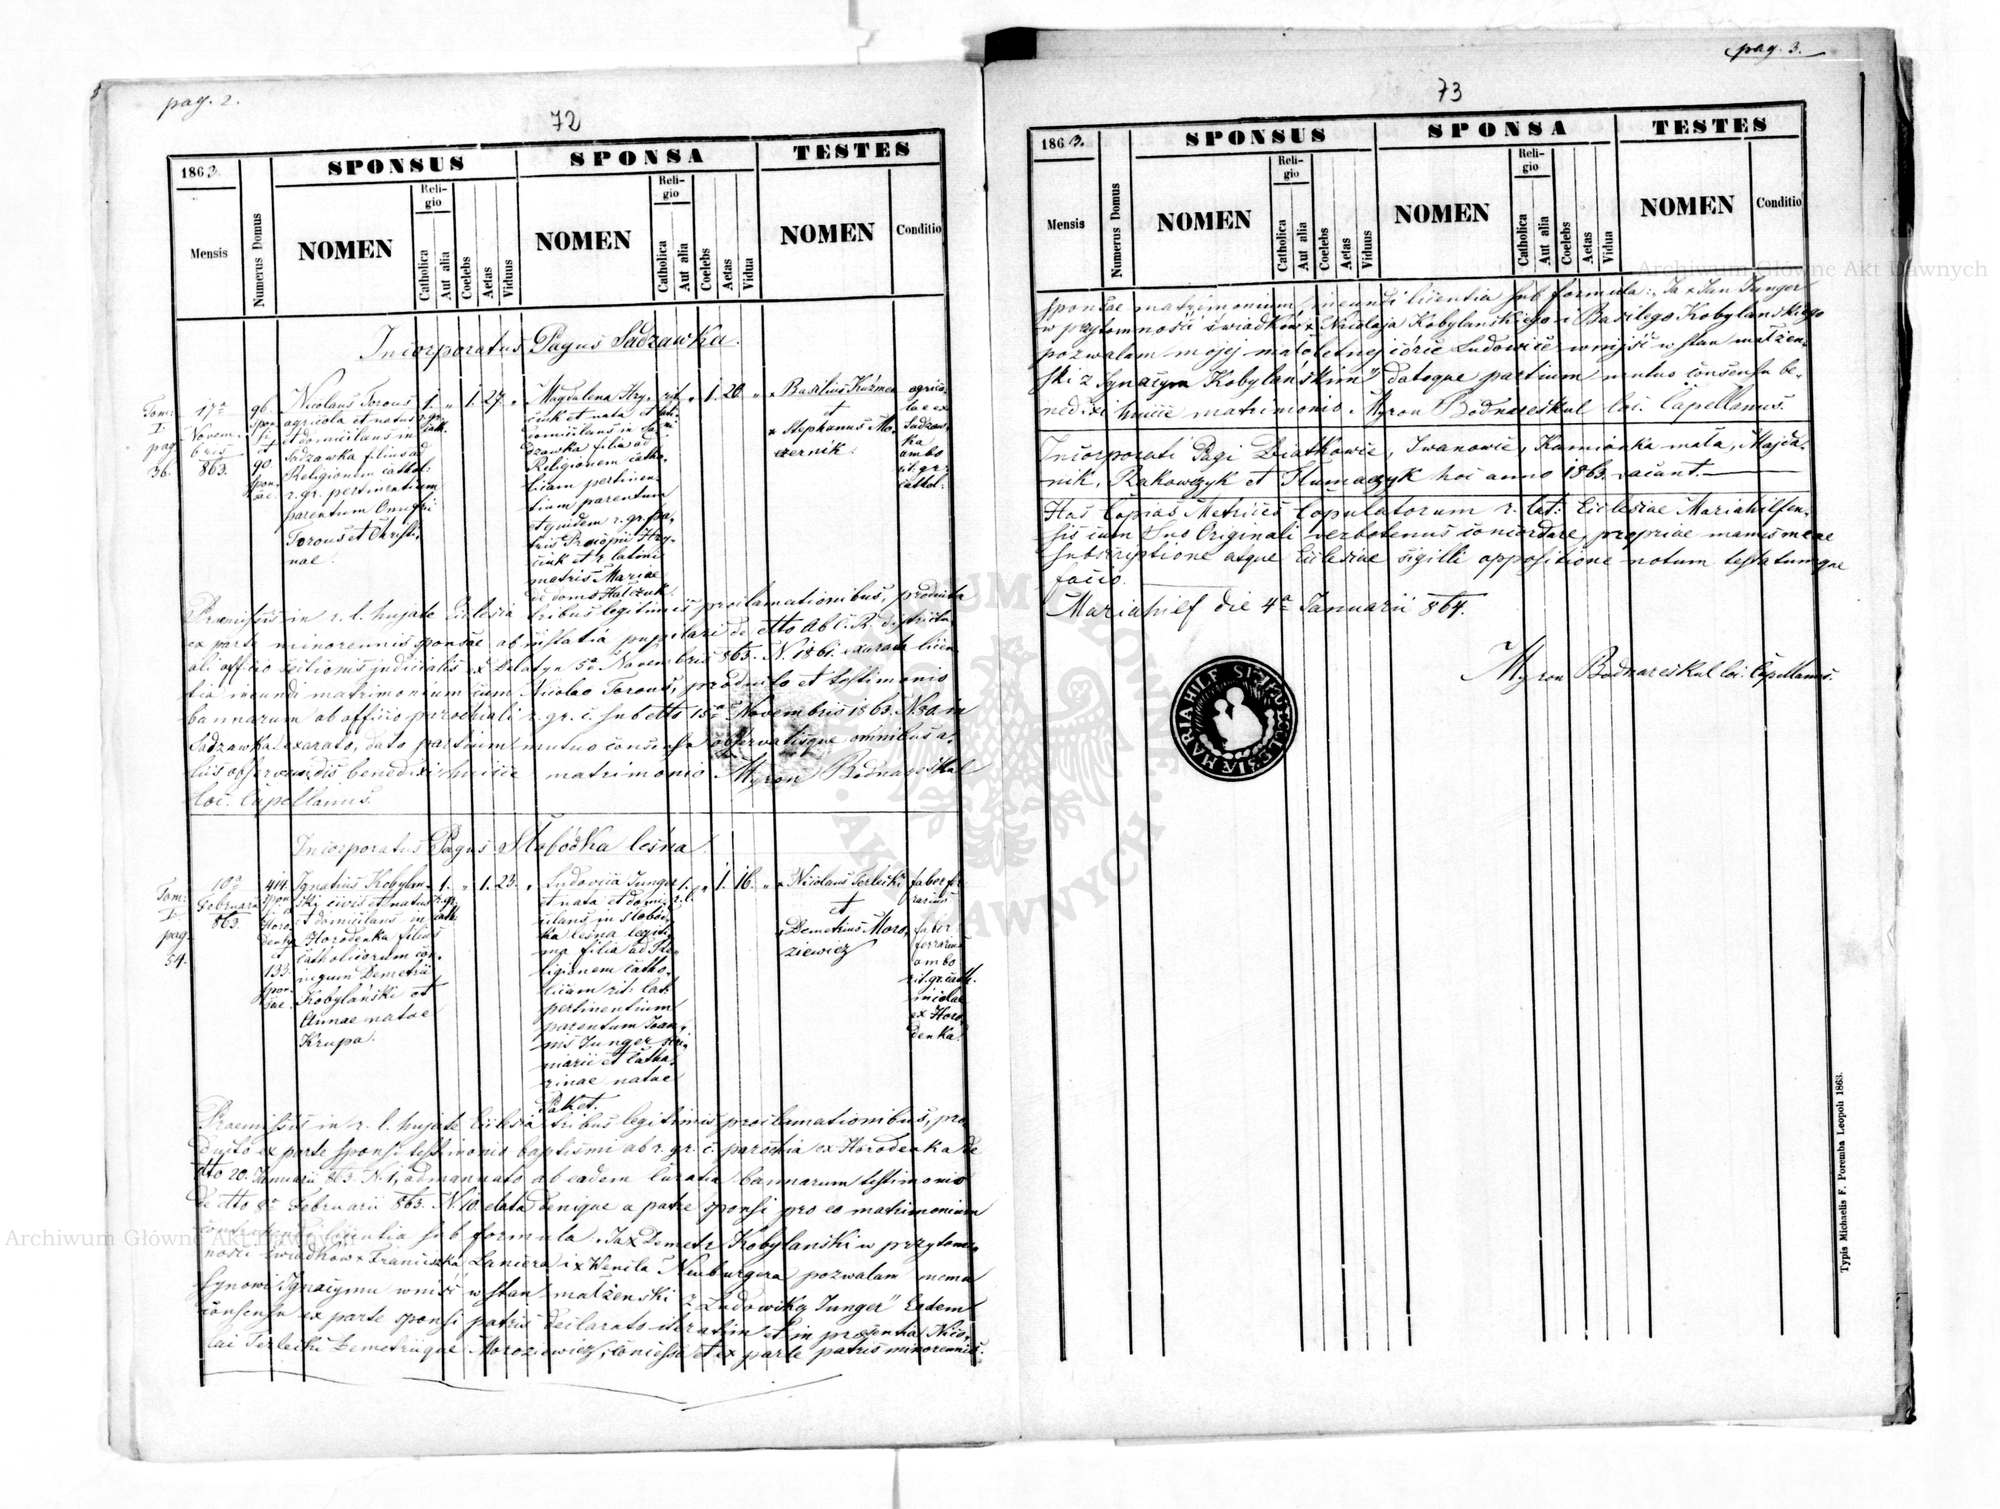 pag. 2.
72
1863.
Mensis
Numerus Domus
SPONSUS
NOMEN
Religio
Catholica
Aut alia
Coelebs
Aetas
Viduus
SPONSA
NOMEN
Religio
Catholica
Aut alia
Coelebs
Aetas
Vidua
TESTES
NOMEN
Conditio
Incorporatus Pagus Sadzawka.
Tom:
I.
pag.
36.
17a
Novem-
bris
863.
96.
spon-
si
et
90.
spon-
sae.
Nicolaus Torous
agricola et natus
et domicilans in
Sadzawka filius ad
Religionem cathol:
r. gr. pertinentium
parentum Onufrii
Torous et Christi-
nae.
1.
r. gr.
cath.
"
1.
27.
"
Magdalena Hry-
ciuk et nata et
domicilans in Sa-
dzawka filia ad
Religionem catho-
licam pertinen-
tium parentum
et quidem r. gr. pa-
tris Procopii Hry-
ciuk et r. latini
matris Mariae
de domo Halczuk.
rit.
lati
"
1.
20.
"
× Basilius Kuźmen
et
× Stephanus Mo-
czernik.
agrico-
lae ex
Sadzaw-
ka
ambo
rit. gr.
cathol.
Praemissis in r. l. hujate Ecclesia tribus legitimis proclamationibus, producta
ex parte minorennis sponsae ab instatia pupilari de dtto ab C. R. districtu-
ali officio seilionis judicialis ex Delatyn 5a Novembris 863. N. 1861. exarata licen-
tia ineundi matrimonium cum Nicolao Torous, producto et testimonio
bannarum ab officio parochiali r. gr. c. sub dtto 15a Novembris 1863. N. 30 in
Sadzawka exarato, dato partium mutuo consensu observatisque omnibus a-
liis observandis benedixi huicce matrimonio Myron Bodnareskul
loc. Capellanus.
Incorporatus Pagus Słobódka leśna.
Tom:
I.
pag.
54.
10a
Februarii
863.
414.
spon-
si
Horo-
denka
et
133.
spon-
sae.
Ignatius Kobylan-
ski civis et natus
et domicilans in
Horodenka filius
catholicorum con-
jugum Demetrii
Kobylański et
Annae natae
Krupa.
1.
r. gr.
cath.
"
1.
23.
"
Ludovica Junger
et nata et domi-
cilans in Słobód-
ka leśna legiti-
ma filia ad Re-
ligionem catho-
licam rit: lat:
pertinentium
parentum Joan-
nis Junger
et Catha-
rinae natae
Paket.
1.
r. l.
"
1.
16.
"
× Nicolaus Terlecki
et
× Demetrius Moro-
ziewicz
faber fer-
rarius
faber
ferrarius
ambo
rit. gr. cath.
incolae
ex Horo-
denka.
Praemissis in r. l. hujate Ecclesia tribus legitimis proclamationibus, pro-
ducto ex parte sponsi testimonio baptismi ab r. gr. c. parochia ex Horodenka de
dtto 20. Januarii 863. N. 1, admannato ab eadem Curatia bannarum testimonio
de dtto 8a Februarii 863. N. 10. elata denique a patre sponsi pro eo matrimonium
contrahendi licentia sub formula „Ja × Demetr Kobylański w przytom-
ności świadków × Franciszka Laniera i × Kenila Neuburgera pozwalam memu
synowi Ignacymu wnijść w stan małżenski z Ludowiką Junger" Eadem
consensu ex parte sponsi patris declarato iteratim et in presentia Nico-
lai Terlecki Demetriique Moroziewicz, concessa et ex parte patris minorennis
pag. 3.
73
1863.
Mensis
Numerus Domus
SPONSUS
NOMEN
Religio
Catholica
Aut alia
Coelebs
Aetas
Viduus
SPONSA
NOMEN
Religio
Catholica
Aut alia
Coelebs
Aetas
Vidua
TESTES
NOMEN
Conditio
sponsae matrimonium ineundi licentia sub formula: „Ja × Jan Junger
w przytomności świadków × Nicolaja Kobylanskiego i Basilego Kobylanskiego
pozwalam mojej małoletnej córce Ludowice wnijść w stan małżen-
ski z Ignacym Kobylanskim" datoque partium mutuo consensu be-
nedixi huicce matrimonio Myron Bodnareskul loc. Capellanus.
Incorporati Pagi Diatkowce, Iwanowce, Kamionka mała, Majda-
nik, Rakowczyk et Tłumaczyk hoc anno 1863. vacant.
Has Copias Metrices Copulatorum r. lat: Ecclesiae Mariahilfen-
sis cum suo Originali verbotenus concordare, propriae manus meae
subscriptione atque Ecclesiae sigilli appositione notum testatumque
facio.
Mariahilf die 4a Januarii 864.
Myron Bodnareskul loc. Capellanus.
Typis Michaelis F. Poremba Leopoli 1863.
Archiwum Główne Akt Dawnych
Archiwum Główne Akt Dawnych